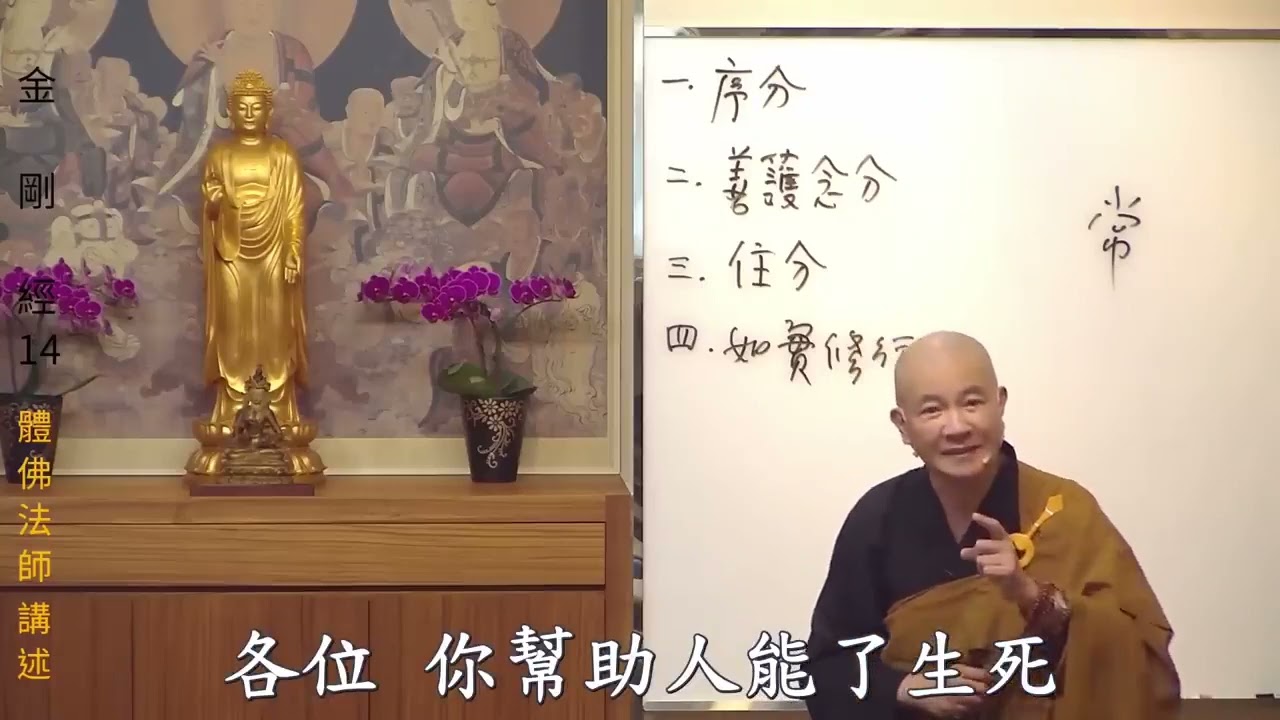 金剛經14
體佛法師講述
一.序分
二.善護念分
三.住分
四.如實修行
常
各位 你幫助人能了生死